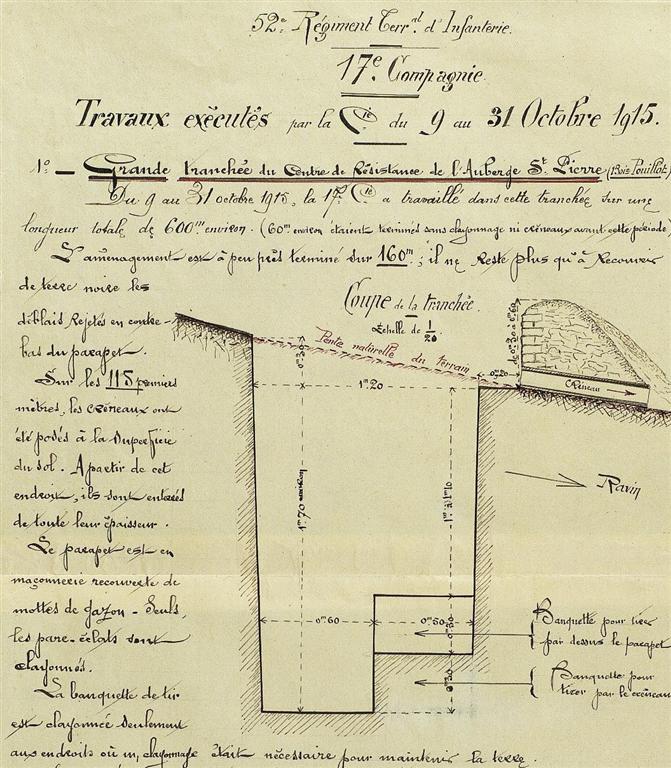 52e Régiment Terral d'Infanterie.
17e Compagnie
Travaux exécutés par la Cie du 9 au 31 Octobre 1915.
1o — Grande tranchée du Centre de Résistance de l'Auberge St Pierre (Bois Pouillot)
Du 9 au 31 octobre 1915, la 17e Cie a travaillé dans cette tranchée sur une
longueur totale de 600m environ. (60m environ étaient terminés sans clayonnage ni créneaux avant cette période)
L'aménagement est à peu près terminé sur 160m ; il ne reste plus qu'à recouvrir
de terre noire les
déblais rejetés en contre-
bas du parapet.
Sur les 115 premiers
mètres, les créneaux ont
été posés à la superficie
du sol. A partir de cet
endroit, ils sont enterrés
de toute leur épaisseur.
Le parapet est en
maçonnerie recouverte de
mottes de gazon - Seuls,
les pare-éclats sont
clayonnés.
La banquette de tir
est clayonnée seulement
aux endroits où un clayonnage était nécessaire pour maintenir la terre.
Coupe de la tranchée.
Echelle de 1/20.
Pente naturelle du terrain
0m30
1m20
0m20
de 0m50 à 0m60
Créneau
Ravin
1m70 environ
1m à 1m10
0m60
0m50
0m50
Banquette pour tirer
par dessus le parapet
Banquette pour
tirer par le créneau